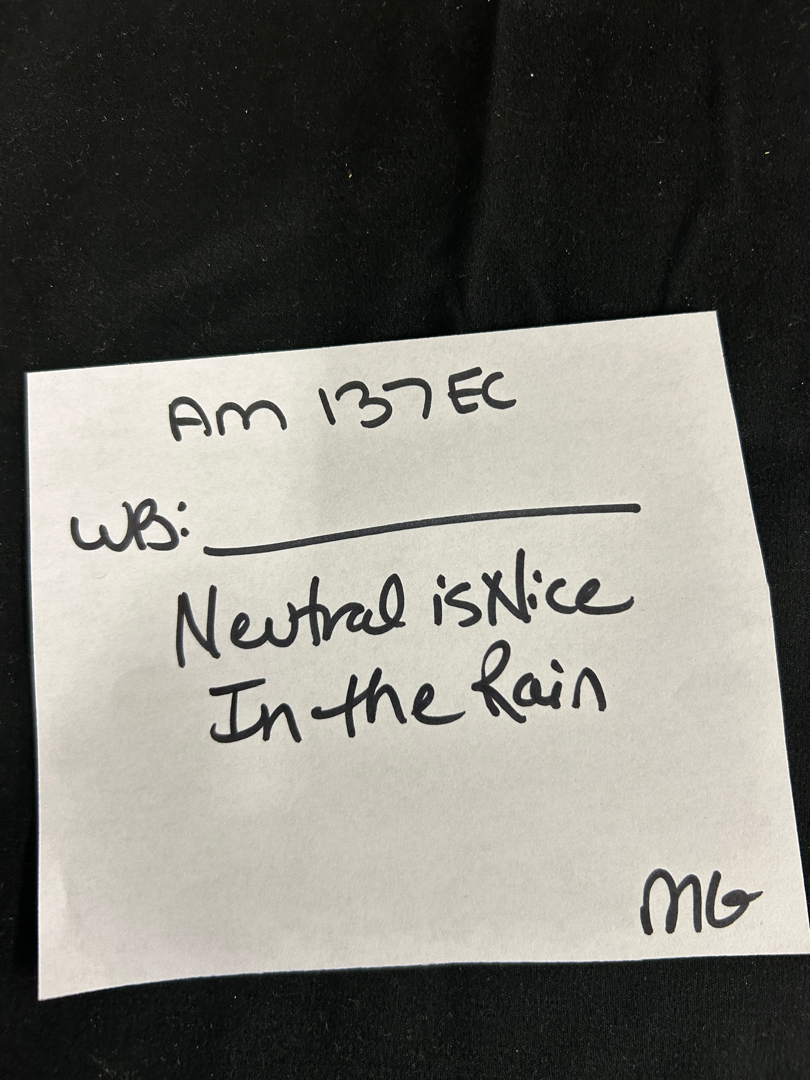 Am 137 EC
WB: ___________
Neutral is Nice
In the Rain
MG